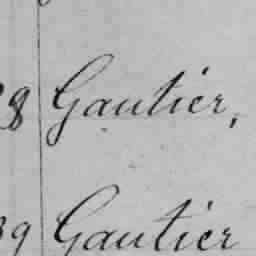 8 Gautier,
39 Gautier